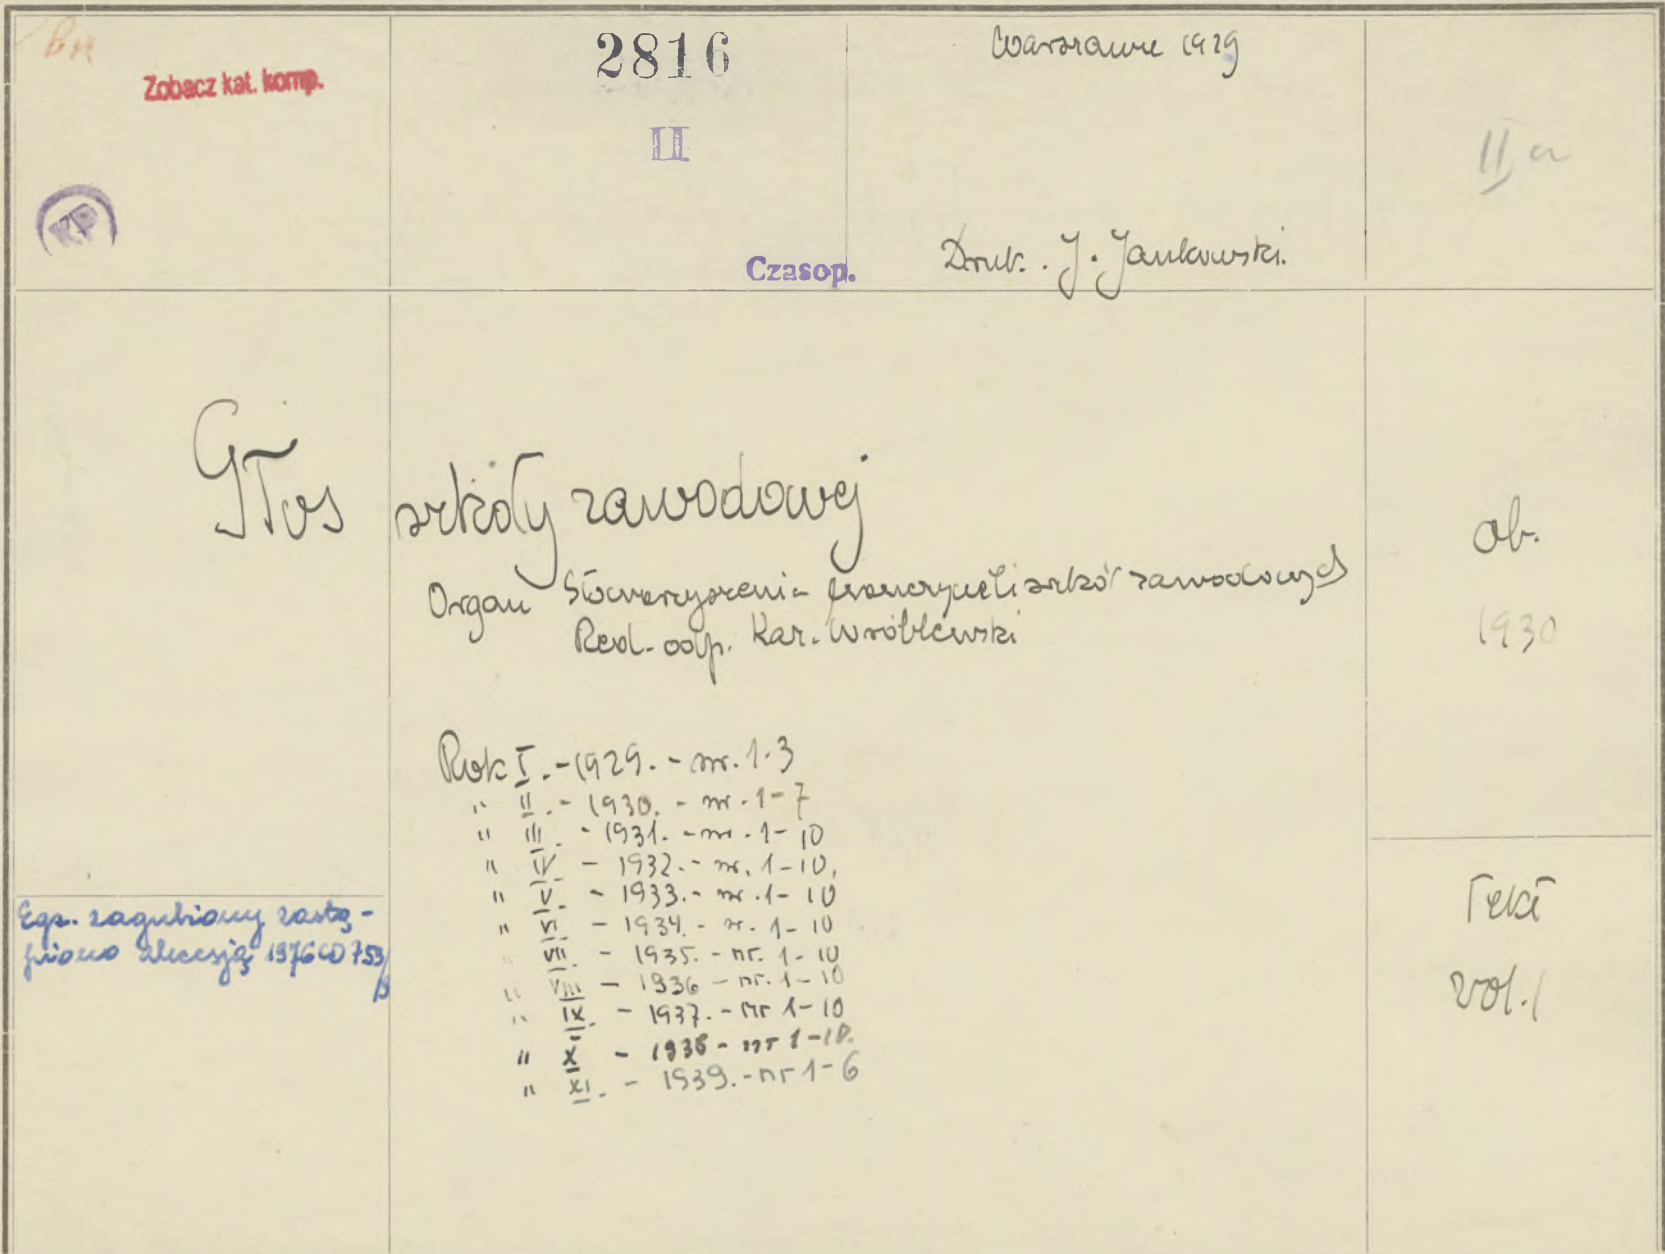 BN
Zobacz kat. komp.
2816
II
Czasop.
Warszawa 1929
Druk. J. Jankowski.
II
Głos szkoły zawodowej
Organ Stowarzyszenia nauczycieli szkół zawodowych
Red. odp. Kar. Wróblewski
ob.
1930
Rok I. - 1929. - nr. 1-3
" II. - 1930. - nr. 1-7
" III. - 1931. - nr. 1-10
" IV - 1932. - nr. 1-10.
" V. - 1933. - nr. 1-10
" VI - 1934. - nr. 1-10
VII. - 1935. - nr. 1-10
" VIII - 1936 - nr. 1-10
" IX. - 1937. - nr 1-10
" X - 1938 - nr 1-10.
" XI. - 1939. - nr 1-6
Egz. zagubiony zastą-
piono akcesją 1976
vol. 1